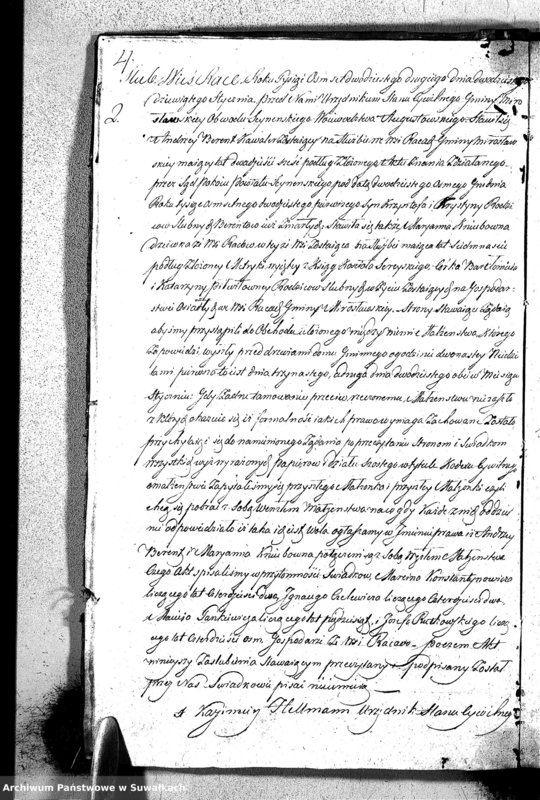 4
2.
Wieś Roku Tysiąc Ośmset dwudziestego drugiego dnia
dziewiątego Stycznia, przed Nami Urzędnikiem Stanu Cywilnego Gminy Miro
sławskiey Obwodu Seynenskiego Woiewodztwa Augustowskiego Stawił się
Andrzey Berent Kawaler Zostaiący na Służbie we Wsi Gminy Mirosław
skiey maiący lat dwadzieścia sześć podług złożonego Aktu Znania Zdziałanego
przez Sąd Pokoiu Powiatu Seynenskiego pod datą dwudziestego Osmego Grudnia
Roku Tysiąc Osmsetnego dwudziestego pierwszego Syn Krzysztofa i Krystyny Rodzi
ców Berentow iuż Zmarłych; Stawiła się także Maryanna Kniubowna
dziewka ze Wsi w tychże Wsi Zostaiąca na Służbie maiąca lat Siedmnaście
podług złożoney Metryki wyiętey z Xiąg Kościoła Sereyskiego, Córka Bartłomieia
i Katarzyny Rodziców w życiu Zostaiących na Gospodar
stwie Osiadłych we Wsi Gminy Mirosławskiey. Strony Stawaiące żądaią
abyśmy przystąpili do Obchodu ułożonego między niemi Małżenstwa, którego
Zapowiedzi wyszły przed drzwiami domu Gminnego o godzinie dwunastey Niedzie
lami pierwsza to iest dnia trzynastego, a druga dnia dwudziestego obie w Miesiącu
Styczniu: Gdy żadne tamowanie przeciw rzeczonemu Małżenstwu nie zaszło
z których okazuie się iż formalność iakich prawo wymaga Zachowane Zostało
przychylaiąc się do namienionego żądania po przeczytaniu Stronom i Świadkom
wszystkich wyż wyrażonych papierów i działu szóstego w tytule Kodexu Cywilnego
o małżenstwie Zapytaliśmy się przyszłego Małżonka i przyszłey Małżonki czyli
chcą się pobrać z Sobą Węzłem Małżenstwa na co gdy Każde z nich oddziel
nie odpowiedziało iż taka iest ich wola, ogłaszamy w Imieniu prawa iż Andrzey
Berent i Maryanna Kniubowna połączeni są z Sobą Węzłem Małżenstwa
Czego Akt spisaliśmy w przytomności Świadkow, Marcina Konstantynowicza
liczącego lat Czterdzieści dwa, Ignacego liczącego lat Czterdzieści dwa
liczącego lat pięćdziesiąt, i Jozefa licz
ącego lat Czterdzieści osm Gospodarzy Ze Wsi poczem Akt
ninieyszy Zaślubienia Stawaiącym przeczytany podpisany Został
przez Nas Świadkowie pisać nieumieią
Kazimierz Hellmann Urzędnik Stanu Cywilnego
Archiwum Państwowe w Suwałkach